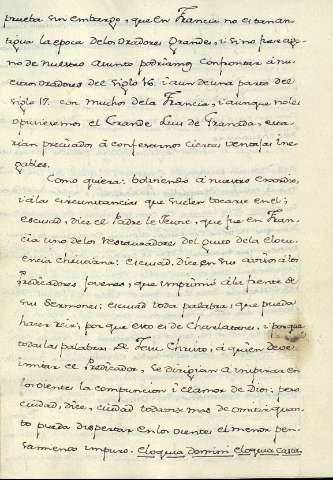 prueba sin embargo, que en Francia no es tan an-
tigua la epoca de los oradores grandes, i si no fue age-
no de nuestro asunto podriamos confrontar à nu-
estros oradores del siglo 16. i aun de una parte del
siglo 17. con muchos de la Francia, i aunque no les
opusieremos el Grande Luis de Granada, esta-
rian precisados à confesarnos ciertas ventajas ine-
gables.
Como quiera: bolviendo à nuestro exordio,
i à las circunstancias que suelen tocarse en el;
escusad, dice el Padre le Jeune, que fue en Fran-
cia uno de los restauradores del gusto de la elocu-
encia christiana: escusad, dice en sus avisos à los
Predicadores jovenes, que imprimiò à la frente de
sus Sermones: escusad toda palabra, que pueda
hacer reir; por que esto es de Charlatanes, i porque
todas las palabras de Jesu Christo, à quien deve
imitar el Predicador, se dirigian à inspirar en
los oientes la compuncion i el amor de Dios: pero
cuidad, dice, cuidad todavia mas de omitir quan-
to pueda dispertar en los oientes el menor pen-
samiento impuro. eloquia domini eloquia casta